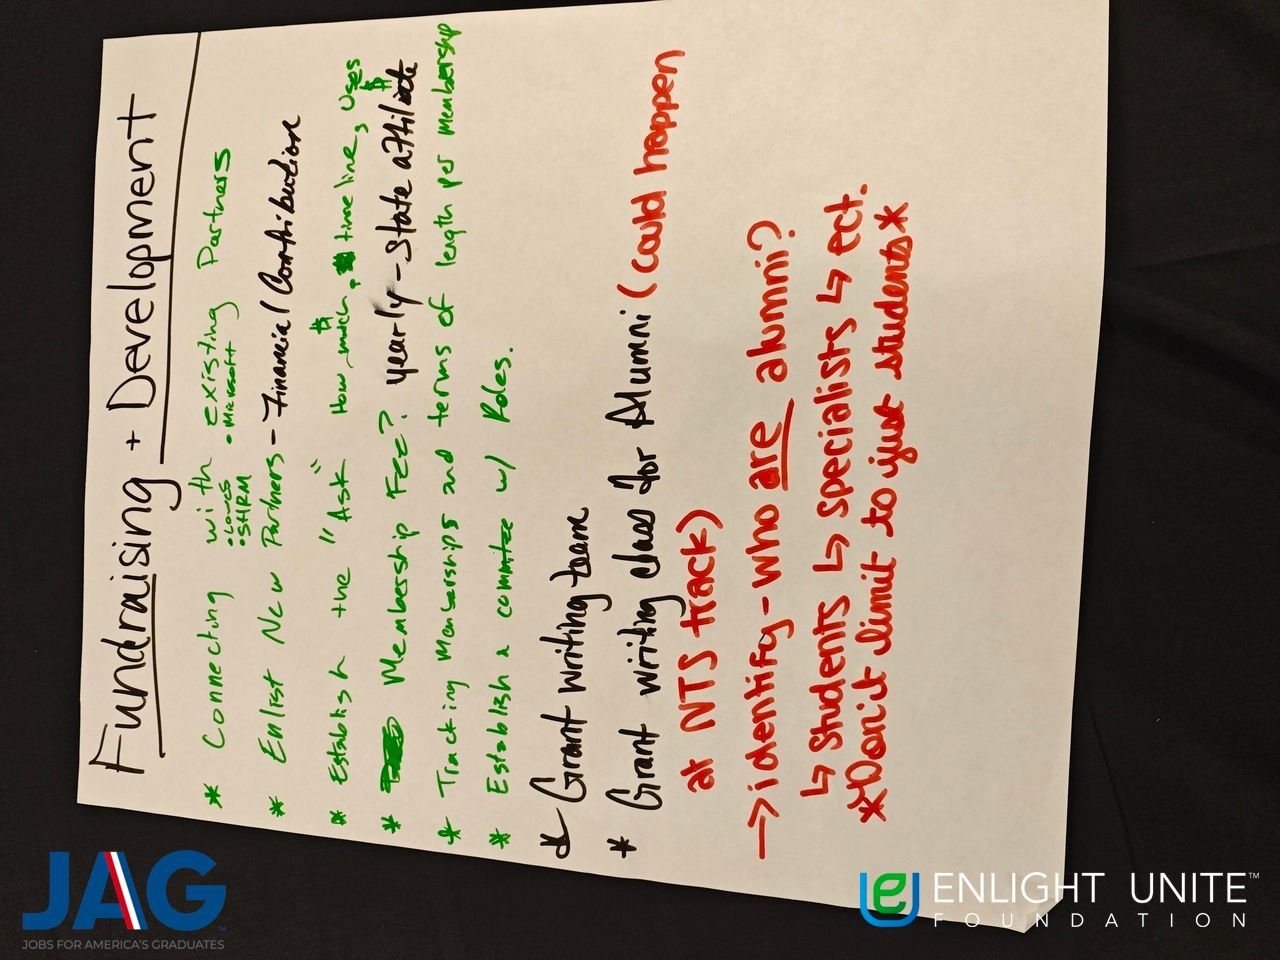 Fundraising + Development
* Connecting with existing Partners
• Loves • Microsoft
• SHRM
* Enlist New Partners - Financial Contribution
* Establish the "Ask" How much $, timeline, uses
* Membership Fee? yearly - state affiliate $
* Tracking Memberships and terms of length per membership
* Establish a commitee w/ Roles.
* Grant writing team
* Grant writing class for Alumni (could happen
at NTS track)
→ identify - who are alumni?
↳ Students ↳ specialists ↳ ect.
*Don't limit to just students*
JAG
JOBS FOR AMERICA'S GRADUATES
ENLIGHT UNITE™
FOUNDATION